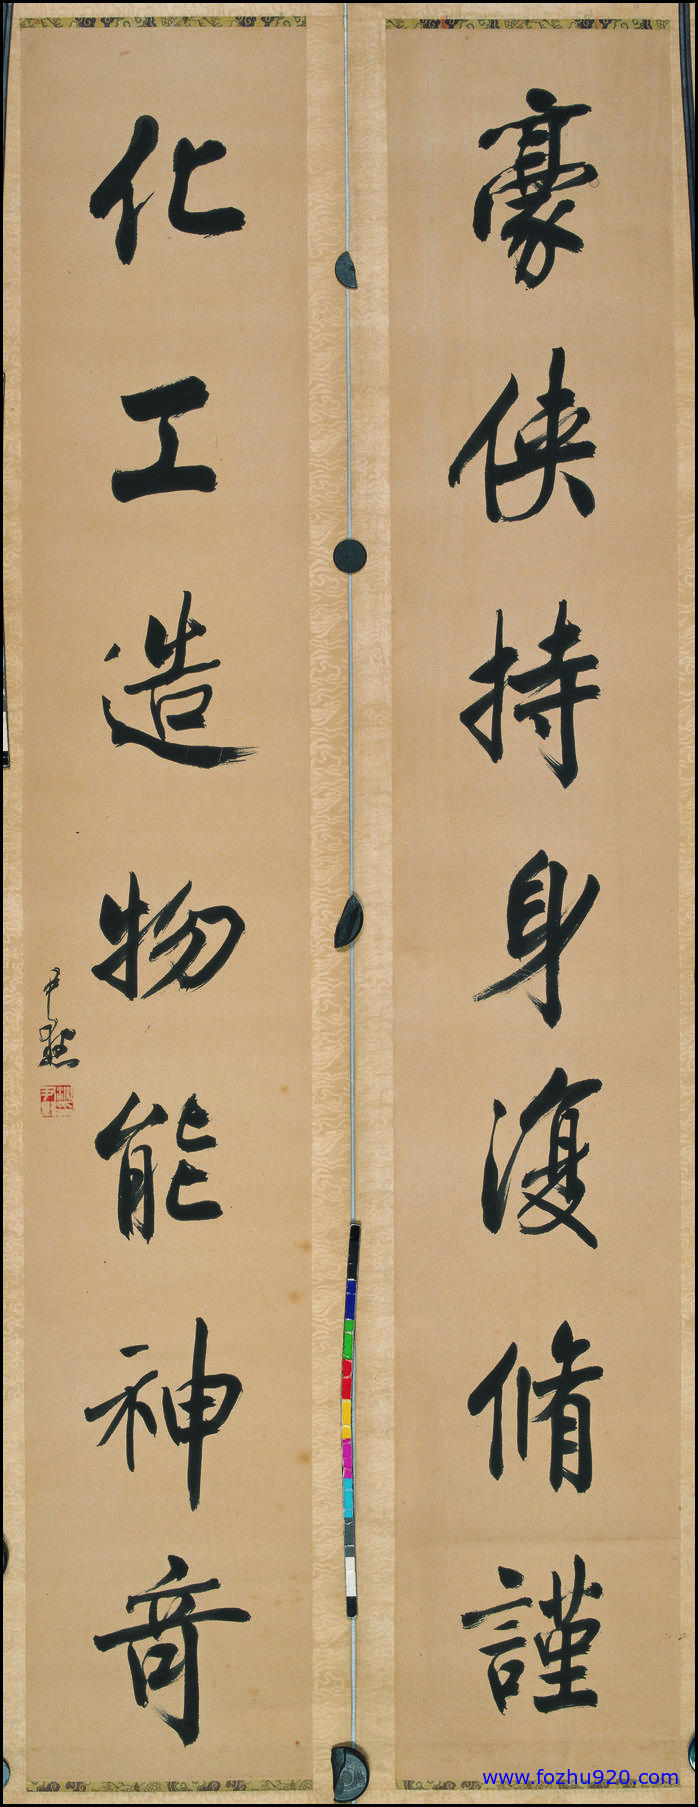 豪侠持身復脩謹
化工造物能神竒
尹默
www.fozhu920.com